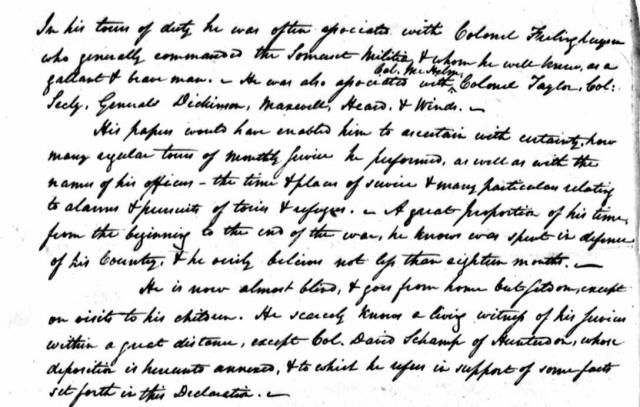 In his tours of duty he was often associated with Colonel Frelinghuysen
who generally commanded the Somerset Militia, & whom he well knew, as a
gallant & brave man. – He was also associated with Col. McHelm, Colonel Taylor, Col:
Seely, Generals Dickinson, Maxwell, Heard, & Winds. –
His papers would have enabled him to ascertain with certainty, how
many regular tours of monthly service he performed, as well as with the
names of his officers – the time & places of service & many particulars relating
to alarms & pursuits of tories & refugees. – A great proportion of his time,
from the beginning to the end of the war, he knows was spent in defence
of his Country, & he verily believes not less than eighteen months. –
He is now almost blind, & goes from home but seldom, except
on visits to his children. He scarcely knows a living witness of his services
within a great distance, except Col. David Schamp of Hunterdon, whose
deposition is hereunto annexed, & to which he refers in support of some facts
set forth in this Declaration. –